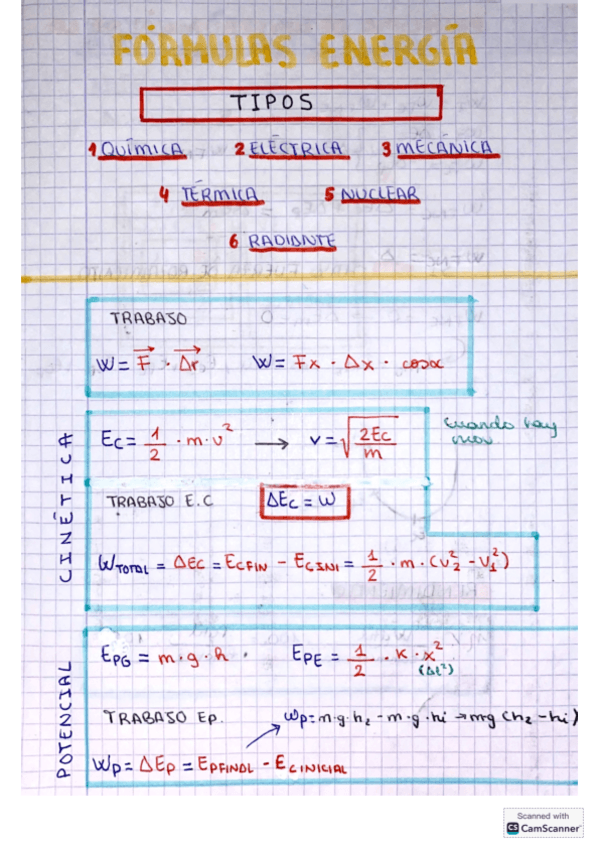 FÓRMULAS ENERGÍA
TIPOS
1 QUÍMICA 2 ELÉCTRICA 3 MECÁNICA
4 TÉRMICA 5 NUCLEAR
6 RADIANTE
TRABAJO
W = F⃗ · Δr⃗ W = Fx · Δx · cosα
CINÉTICA
Ec = 1/2 · m · v² → v = √(2Ec/m)
cuando hay
mov
TRABAJO E.C ΔEc = W
WTOTAL = ΔEc = ECFIN - ECINI = 1/2 · m · (v₂² - v₁²)
POTENCIAL
EPG = m · g · h · EPE = 1/2 · K · x²
(Δl²)
TRABAJO Ep. Wp = m·g·h₂ - m·g·hi → mg (h₂ - hi)
Wp = ΔEp = EPFINAL - ECINICIAL
Scanned with
CS CamScanner